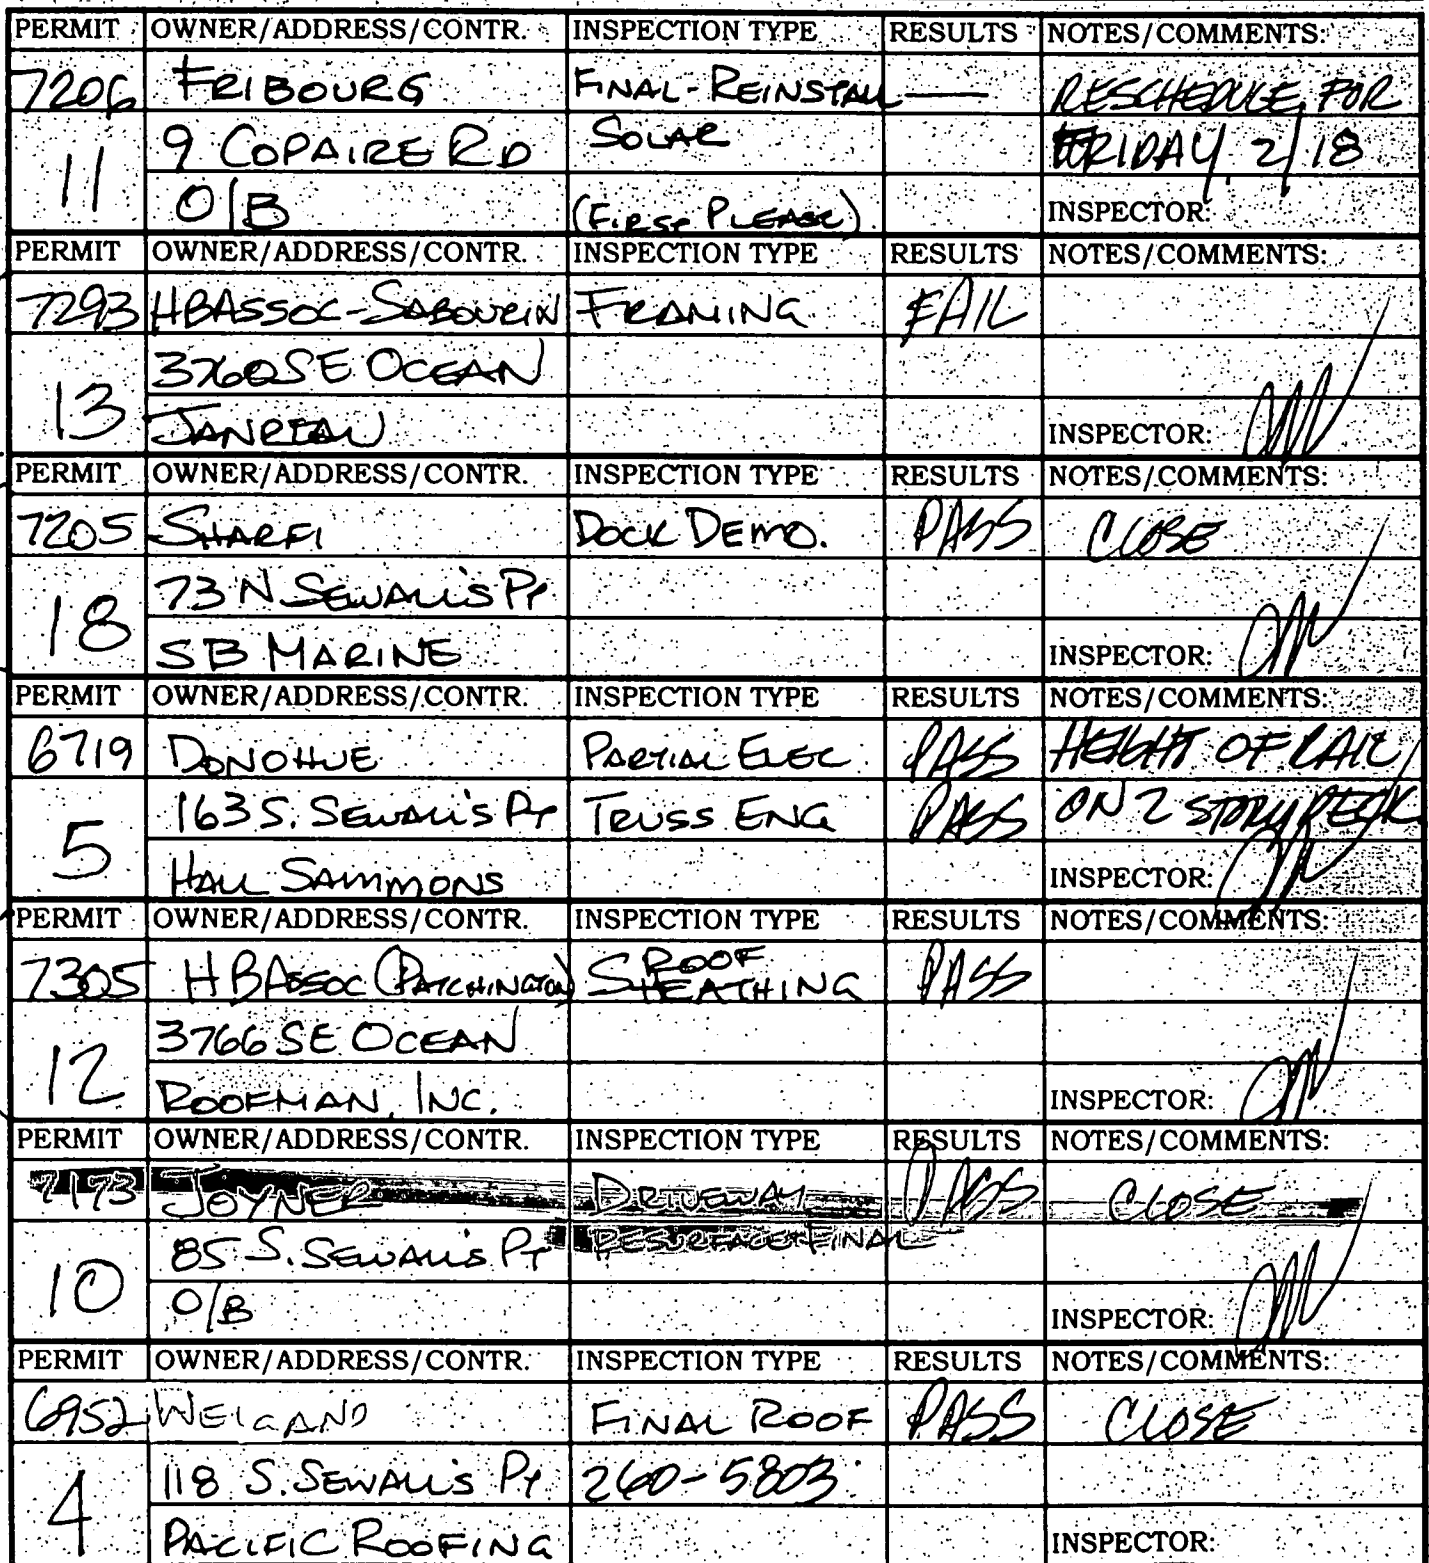 PERMIT OWNER/ADDRESS/CONTR. INSPECTION TYPE RESULTS NOTES/COMMENTS:
7206 FRIBOURG FINAL-REINSTALL — RESCHEDULE FOR
11 9 COPAIRE RD SOLAR FRIDAY, 2/18
O/B (FIRST PLEASE) INSPECTOR:
PERMIT OWNER/ADDRESS/CONTR. INSPECTION TYPE RESULTS NOTES/COMMENTS:
7293 HBASSOC-SABOURIN FRAMING FAIL
13 3760 SE OCEAN
JANREAU INSPECTOR:
PERMIT OWNER/ADDRESS/CONTR. INSPECTION TYPE RESULTS NOTES/COMMENTS:
7205 SHARFI DOCK DEMO. PASS CLOSE
18 73 N SEWALL'S PT
SB MARINE INSPECTOR:
PERMIT OWNER/ADDRESS/CONTR. INSPECTION TYPE RESULTS NOTES/COMMENTS:
6719 DONOHUE PARTIAL ELEC PASS HEIGHT OF RAIL
5 163 S. SEWALL'S PT TRUSS ENG PASS ON 2 STORY DECK
HALL SAMMONS INSPECTOR:
PERMIT OWNER/ADDRESS/CONTR. INSPECTION TYPE RESULTS NOTES/COMMENTS:
7305 HBASSOC (PATCHINGTON) ROOF SHEATHING PASS
12 3766 SE OCEAN
ROOFMAN, INC. INSPECTOR:
PERMIT OWNER/ADDRESS/CONTR. INSPECTION TYPE RESULTS NOTES/COMMENTS:
7173 JOYNER DRIVEWAY PASS CLOSE
10 85 S. SEWALL'S PT RESURFACE FINAL
O/B INSPECTOR:
PERMIT OWNER/ADDRESS/CONTR. INSPECTION TYPE RESULTS NOTES/COMMENTS:
6952 WEIGAND FINAL ROOF PASS CLOSE
4 118 S. SEWALL'S PT 260-5803
PACIFIC ROOFING INSPECTOR: